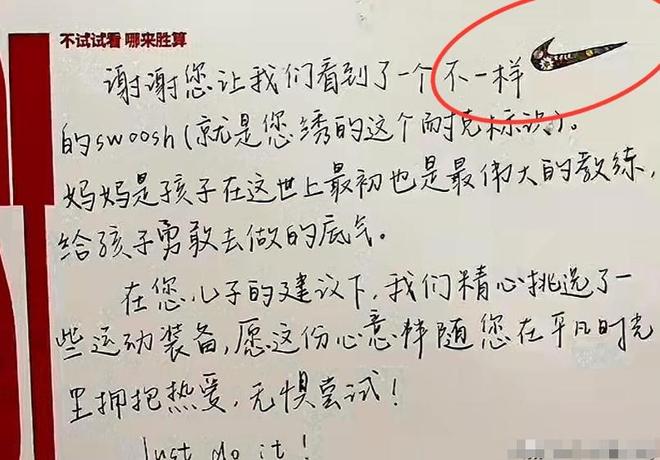 不试试看 哪来胜算
谢谢您让我们看到了一个不一样
的swoosh(就是您绣的这个耐克标识)。
妈妈是孩子在这世上最初也是最伟大的教练,
给孩子勇敢去做的底气。
在您儿子的建议下,我们精心挑选了一
些运动装备,愿这份心意伴随您在平凡时光
里拥抱热爱,无惧尝试!
Just do it!